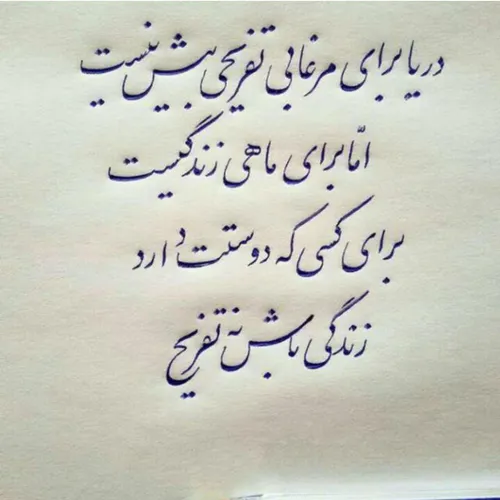 دریا برای مرغابی تفریحی بیش نیست
امّا برای ماهی زندگیست
برای کسی که دوستت دارد
زندگی باش نه تفریح